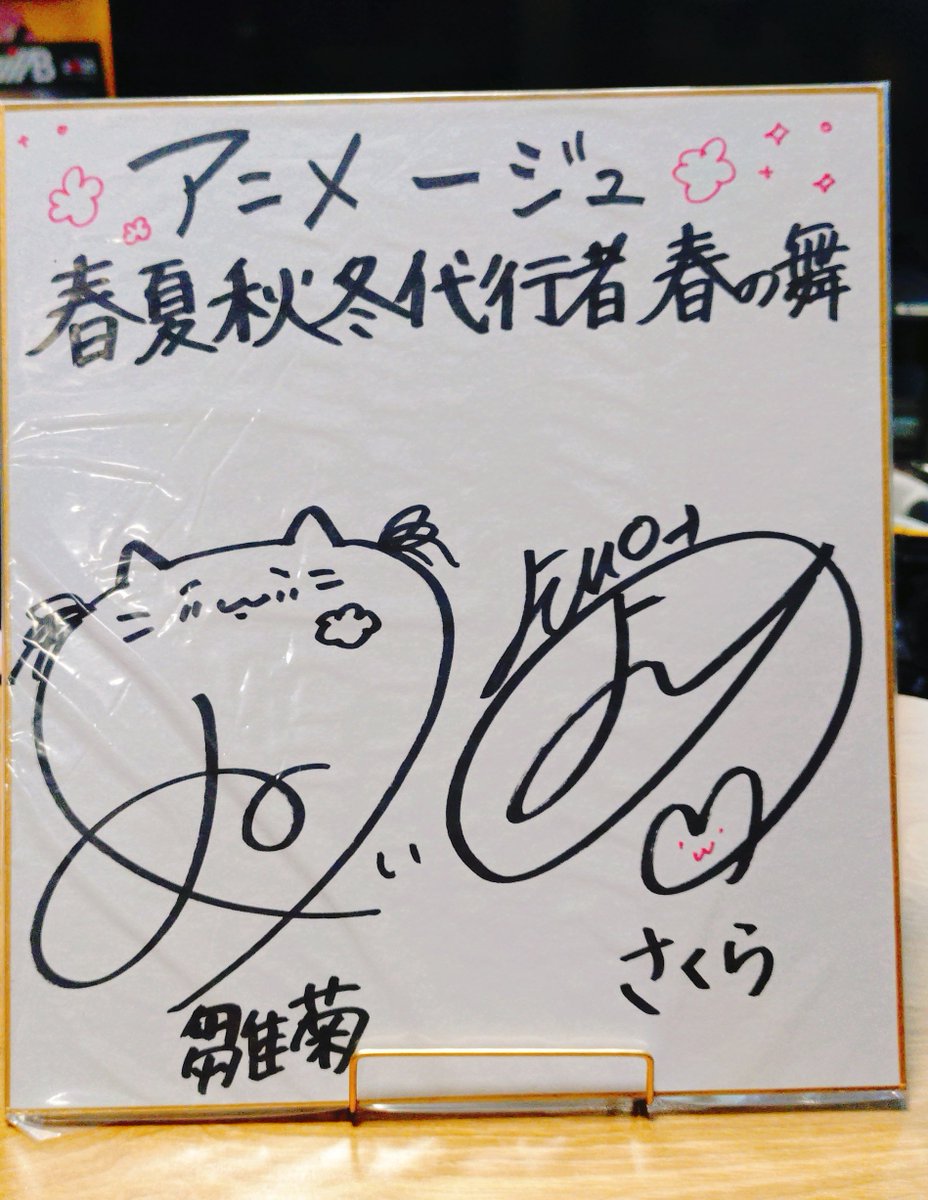 アニメージュ
春夏秋冬代行者 春の舞
い
雛菊
さくら